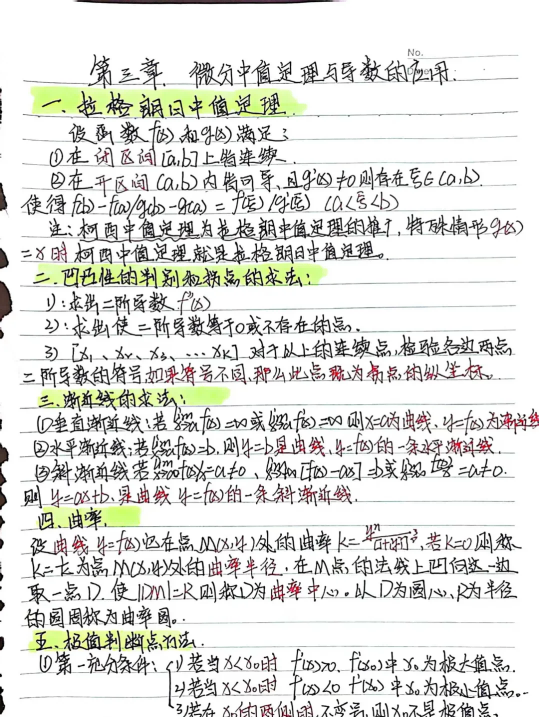 No.
第三章 微分中值定理与导数的应用.
一.拉格朗日中值定理.
设函数 f(x) 和 g(x) 满足:
①在闭区间[a,b]上皆连续.
②在开区间(a,b)内皆可导,且g'(x)≠0则存在ξ∈(a,b).
使得f(b)-f(a)/g(b)-g(a)=f'(ξ)/g'(ξ) (a<ξ<b)
注:柯西中值定理为拉格朗中值定理的推广,特殊情形g(x)
=x时柯西中值定理就是拉格朗日中值定理。
二.凹凸性的判别和拐点的求法:
1):求出二阶导数f''(x)
2):求出使二阶导数等于0或不存在的点.
3) [x₁、x₂、x₃、…xₖ] 对于以上的连续点,检验各边两点
二阶导数的符号如果符号不同,那么此点就为拐点的纵坐标.
三.渐近线的求法:
①垂直渐近线:若 f(x)=∞或 f(x)=∞则x=a为曲线,y=f(x)为渐近线
②水平渐近线:若 f(x)=b,则y=b是曲线,y=f(x)的一条水平渐近线.
③斜渐近线若 =a≠0、 [f(x)-ax]=b或 =a≠0.
则 y=ax+b,是曲线 y=f(x)的一条斜渐近线.
四.曲率.
设曲线 y=f(x)它在点M(x,y)处的曲率k= ,若k≠0则称
为点M(x,y)处的曲率半径,在M点的法线上凹向这一边
取一点D.使|DM|=R则称D为曲率中心。以D为圆心,R为半径
的圆周称为曲率圆。
五.极值判断点方法.
①第一充分条件: 1)若当x<x₀时 f'(x)>0, f'(x₀)中x₀为极大值点.
2)若当x<x₀时 f'(x)<0 f'(x₀)中x₀为极小值点。
3)若在x₀的两侧时,不变号,则x₀不是极值点.